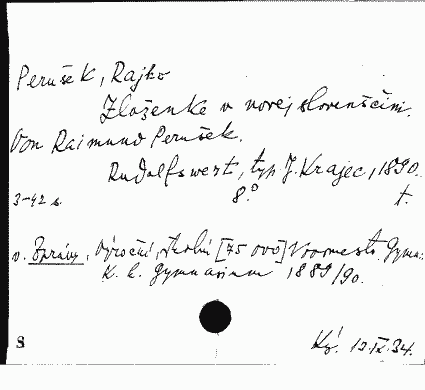 Perušek, Rajko
Zloženke v novej slovenščini.
Von Raimund Perušek.
Rudolfswert, typ. J. Krajec, 1890.
3-42 s. 8° t.
v. Zprávy, výroční, školní [75 000] Novomesto. Gymn.
K. k. Gymnasium 1889/90.
S
Ký. 12.IX.34.